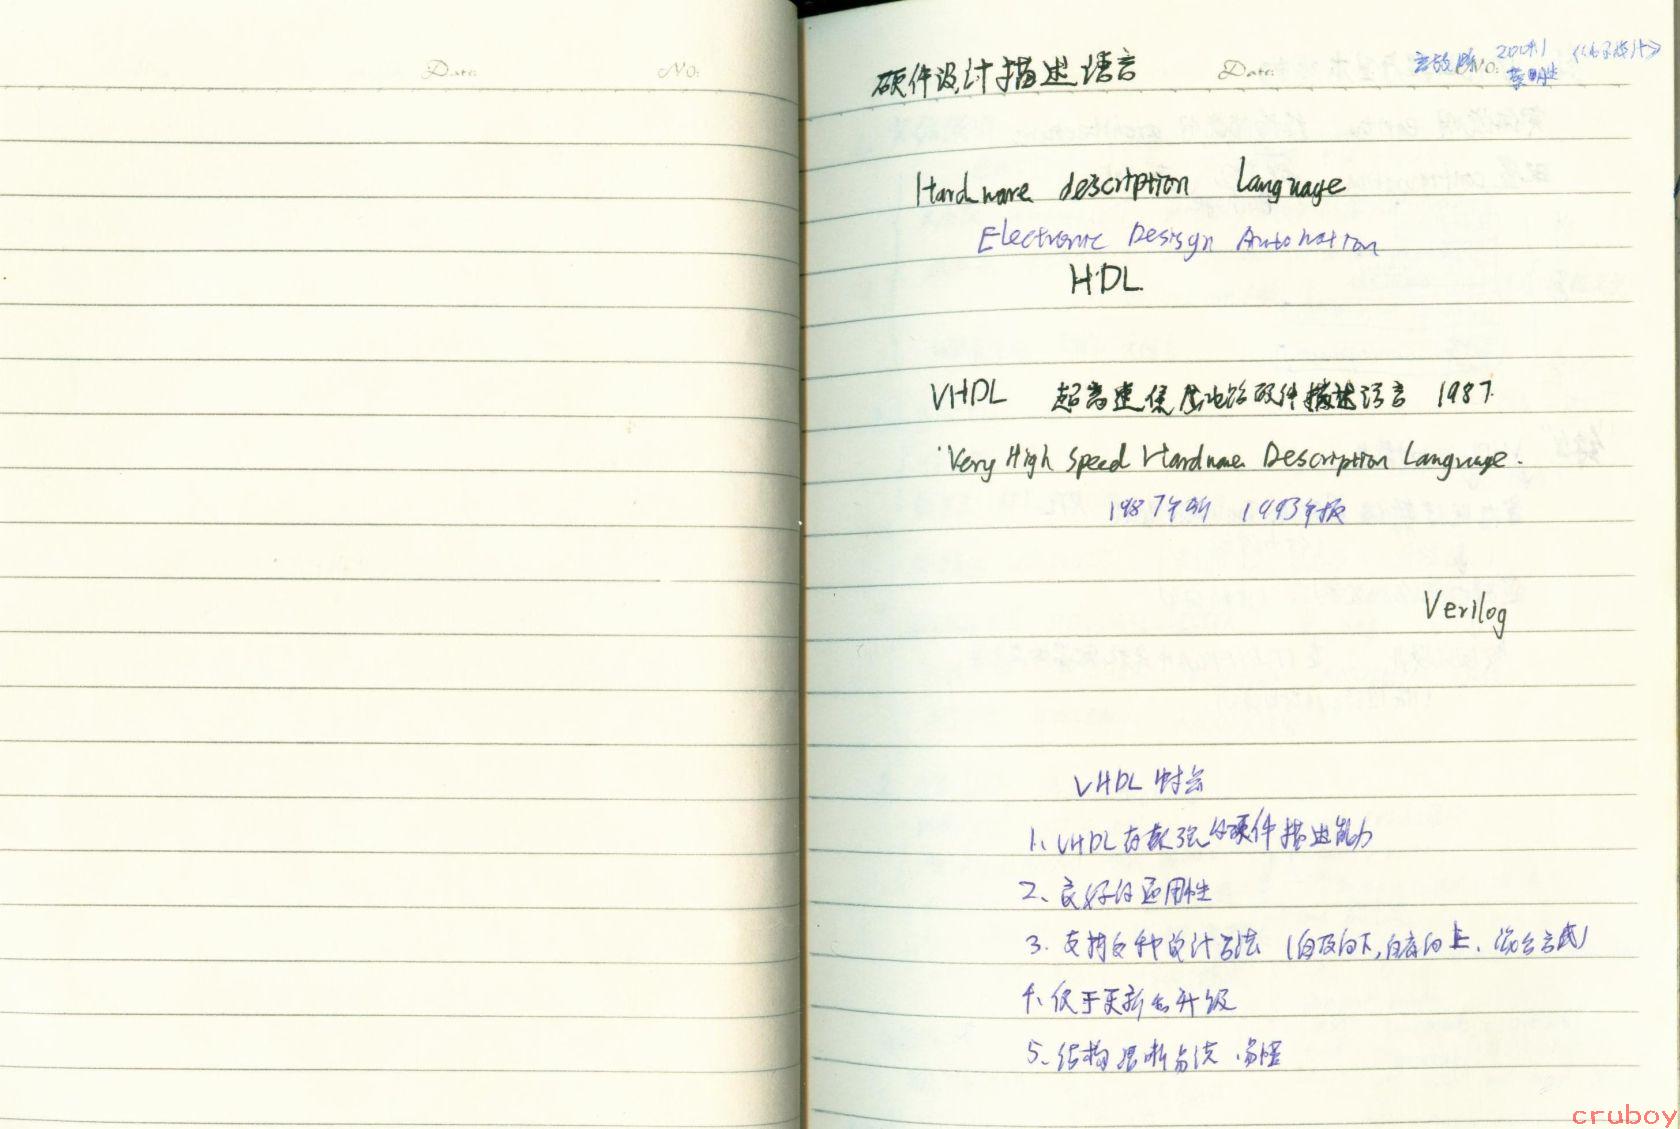 Date: No:
硬件设计描述语言 Date: No: 《电子设计》
Hardware description Language
Electronic Desisgn Automation
HDL
VHDL 超高速集成电路硬件描述语言 1987.
Very High Speed Hardware Description Language.
1987年 1993年版
Verilog
VHDL
1、VHDL 有较强的硬件描述能力
2、良好的适用性
3. 支持多种设计方法 (自顶向下,自底向上、混合方式)
4、便于更新和升级
5、结构清晰易读 易懂
cruboy